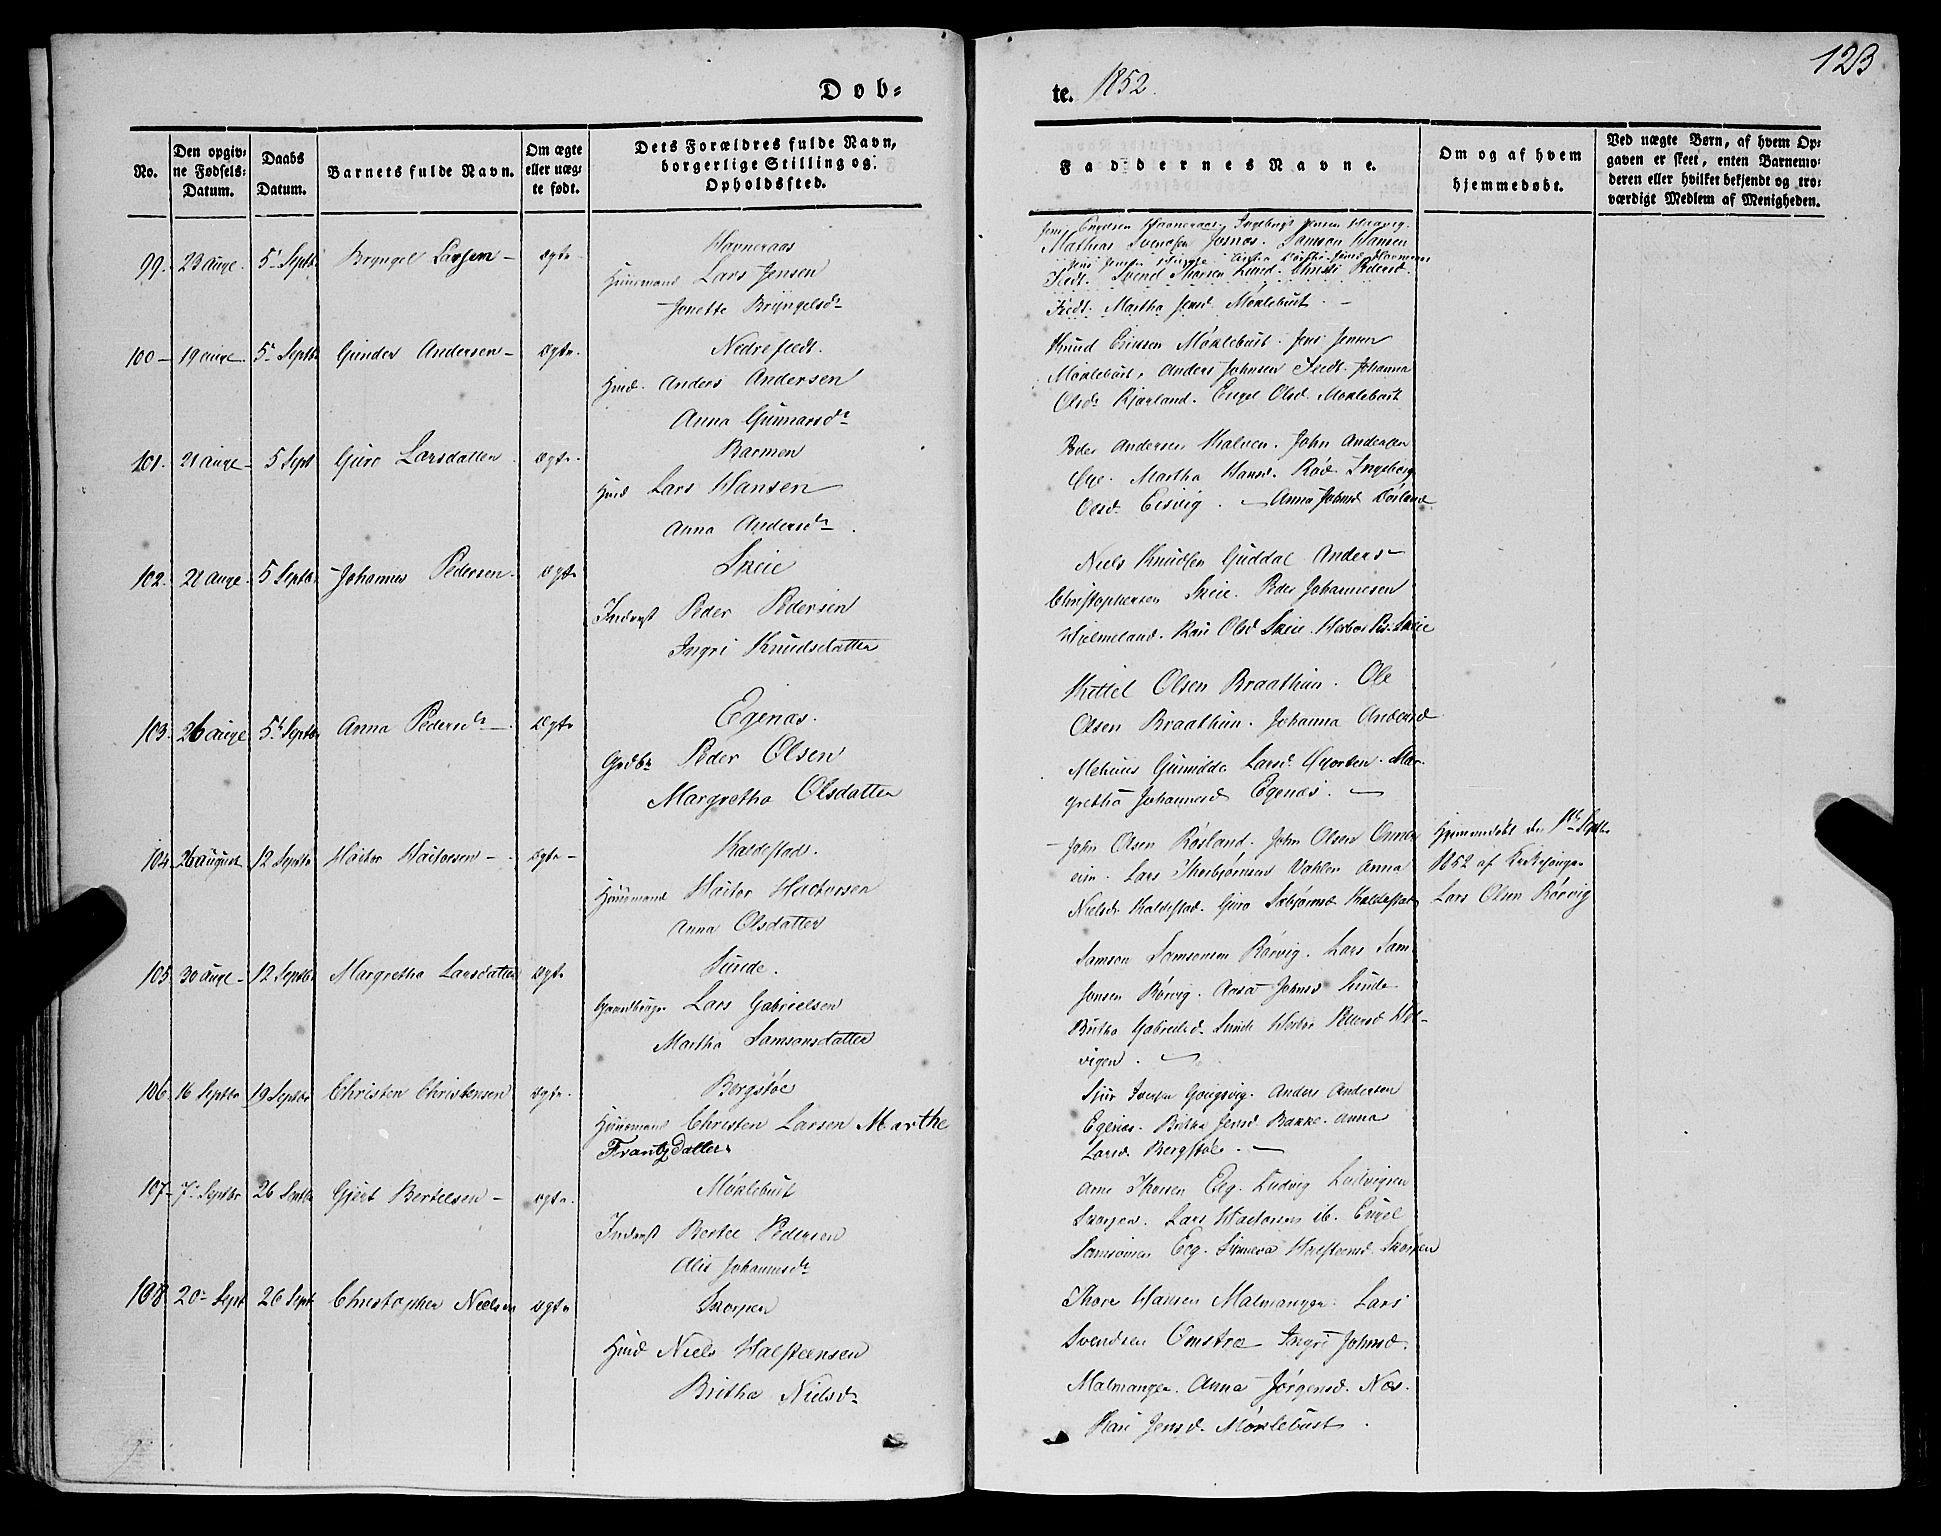 123
Døb-
te. 1852.
No.
Den opgiv-
ne Fødsels-
Datum.
Daabs
Datum.
Barnets fulde Navn.
Om ægte
eller uæg-
te født.
Dets Forældres fulde Navn,
borgerlige Stilling og
Opholdssted.
Faddernes Navne.
Om og af hvem
hjemmedøbt.
Ved uægte Børn, af hvem Op-
gaven er skeet, enten Barnemo-
deren eller hvilket bekjendt og tro-
værdigt Medlem af Menigheden.
99. 23 aug. 5 Septb. Bryngel Larsen - ægte
Havneraas
Huusmand Lars Jensen
Jonette Bryngelsdr
Mathias Svendsen Hansen
Tvedt. Svend Lund. Christi Pedersd.
Tvedt. Martha Jensd. Møklebust. -
100 - 19 aug. 5 Septb Gunder Andersen - ægte.
Nedretvedt.
Hmd. Anders Andersen
Anna Gunnarsdr
Knud Ericsen Møklebust. Jens Jensen
Møklebust, Anders Johnsen Tvedt. Johanna
Olsdr Kjærland. Engel Olsd Møklebust
101. 21 aug - 5 Sept Guro Larsdatter. ægte.
Barmen
Hmd Lars Hansen
Anna Andersdr.
Peder Andersen Halven. John Andersen
Øye. Martha Hansd. Rød. Ingeborg
Olsd. Eisvig. - Anna Johnsd Røsland
102. 21 aug. 5 Septb. Johannes Pedersen. ægte
Skeie
Inderst Peder Pedersen
Ingri Knudsdatter
Niels Knudsen Guddal Anders -
Christophersen Skeie. Peder Johannesen
Hielmeland. Kari Olsd Skeie. Herbor Skeie
103. 26 aug 5 Septb Anna Pedersdr - ægte
Egenæs.
Grdbr Peder Olsen
Margretha Olsdatter
Kittel Olsen Braathun. Ole
Olsen Braathun. Johanna Andersd
Melhuus Gunilda Larsd. Hjorten. Mar-
gretha Johannesd Egenæs. -
104. 26 august 12 Septbr Hactor Hactorsen - ægte -
Kaldestad.
Huusmand Hactor Hactorsen
Anna Olsdatter
John Olsen Røsland. John Olsen
eim. Lars Thorbjørnsen Vahlen Anna
Nielsdr Kaldestad. Guro Kaldestad
Hjemmedøbt den 1te Septbr
1852 af Kirkesanger
Lars Olsen Rørvig
105. 30 aug - 12 Septbr Margretha Larsdatter ægte
Sunde.
Gaardbruger Lars Gabrielsen
Martha Samsonsdatter
Samson Samsonsen Rørvig. Lars Sam-
sonsen Rørvig. Aasa Johnsd Sunde
Britha Gabrielsd. Sunde Herbor Pedersd
vigen. -
106. 16 Septbr 19 Septbr Christen Christensen ægte.
Bergstøe
Huusmand Christen Larsen Marthe
Frantzdatter
Siur Gongsvig. Anders Andersen
Egenæs. Britha Jensd Bakke. Anna
Larsd. Bergstøe. -
107 - 7 Septbr 26 Septbr Gjert Bertelsen - ægte.
Møklebust
Inderst Bertel Pedersen
Alis Johannesdr
Arne Thoresen Eeg. Ludvig Ludvigsen
Skorpen. Lars Hactorsen ib. Engel
Samsonsen Eeg. Synneva Halsteensd. Skorpen
108. 20 Sept 26 Sept Christopher Nielsen ægte
Skorpen
Hmd Niels Halsteensen
Britha Nielsdr
Thore Hansen Malmanger. Lars
Svendsen Omstra Ingri Johnsd.
Malmanger. Anna Jørgensd. Næs.
Kari Jensd. Møklebust.